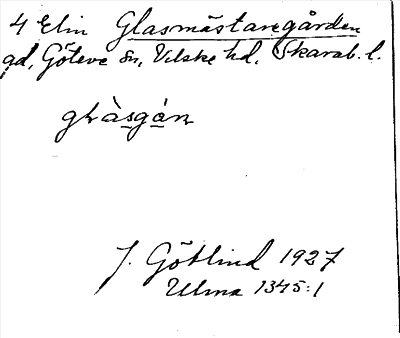 4 Elin Glasmästaregården
gd, Göteve sn, Vilske hd, Skarab. l.
glàsgán
J. Götlind 1927
Ulma 1345:1